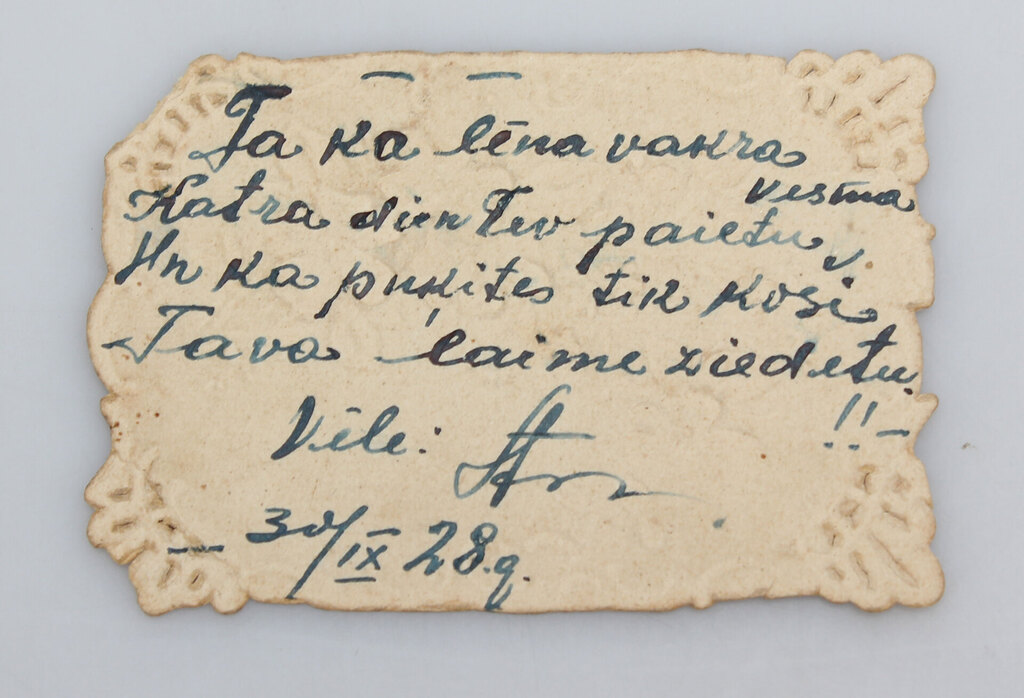 Ta ka lēna vakra
vesma
Katra dien Tev paietu,
Un ka pukites tik koši
Tava laime ziedetu.
!!–
Vēle:
– 30/IX 28.g.